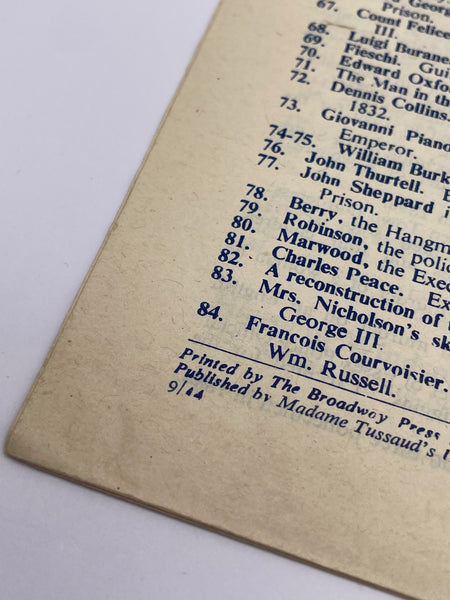 Georg
67. Prison.
Count Felice
68. III.
69. Luigi Burane
70. Fieschi. Gui
71. Edward Oxfo
72. The Man in th
Dennis Collins.
73. 1832.
Giovanni Piano
74-75. Emperor.
76. William Burk
77. John Thurtell. E
John Sheppard i
78. Prison.
79. Berry, the Hangm
80. Robinson, the polic
81. Marwood, the Exec
82. Charles Peace. Ex
83. A reconstruction of
Mrs. Nicholson's sk
84. George III.
Francois Courvoisier.
Wm. Russell.
Printed by The Broadway Press
Published by Madame Tussaud's
9/44